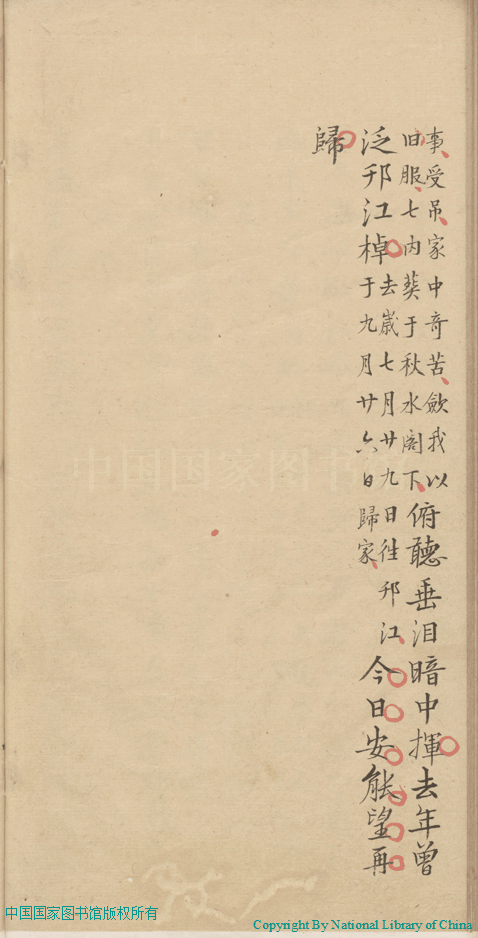 事受吊家中奇苦斂我以
旧服七内葬于秋水阁下
俯聽垂泪暗中揮去年曾
泛邗江棹
去歲七月廿九日徃邗江
于九月廿六日歸家
今日安能望再
歸
中国国家图书
中国国家图书馆版权所有
Copyright By National Library of China